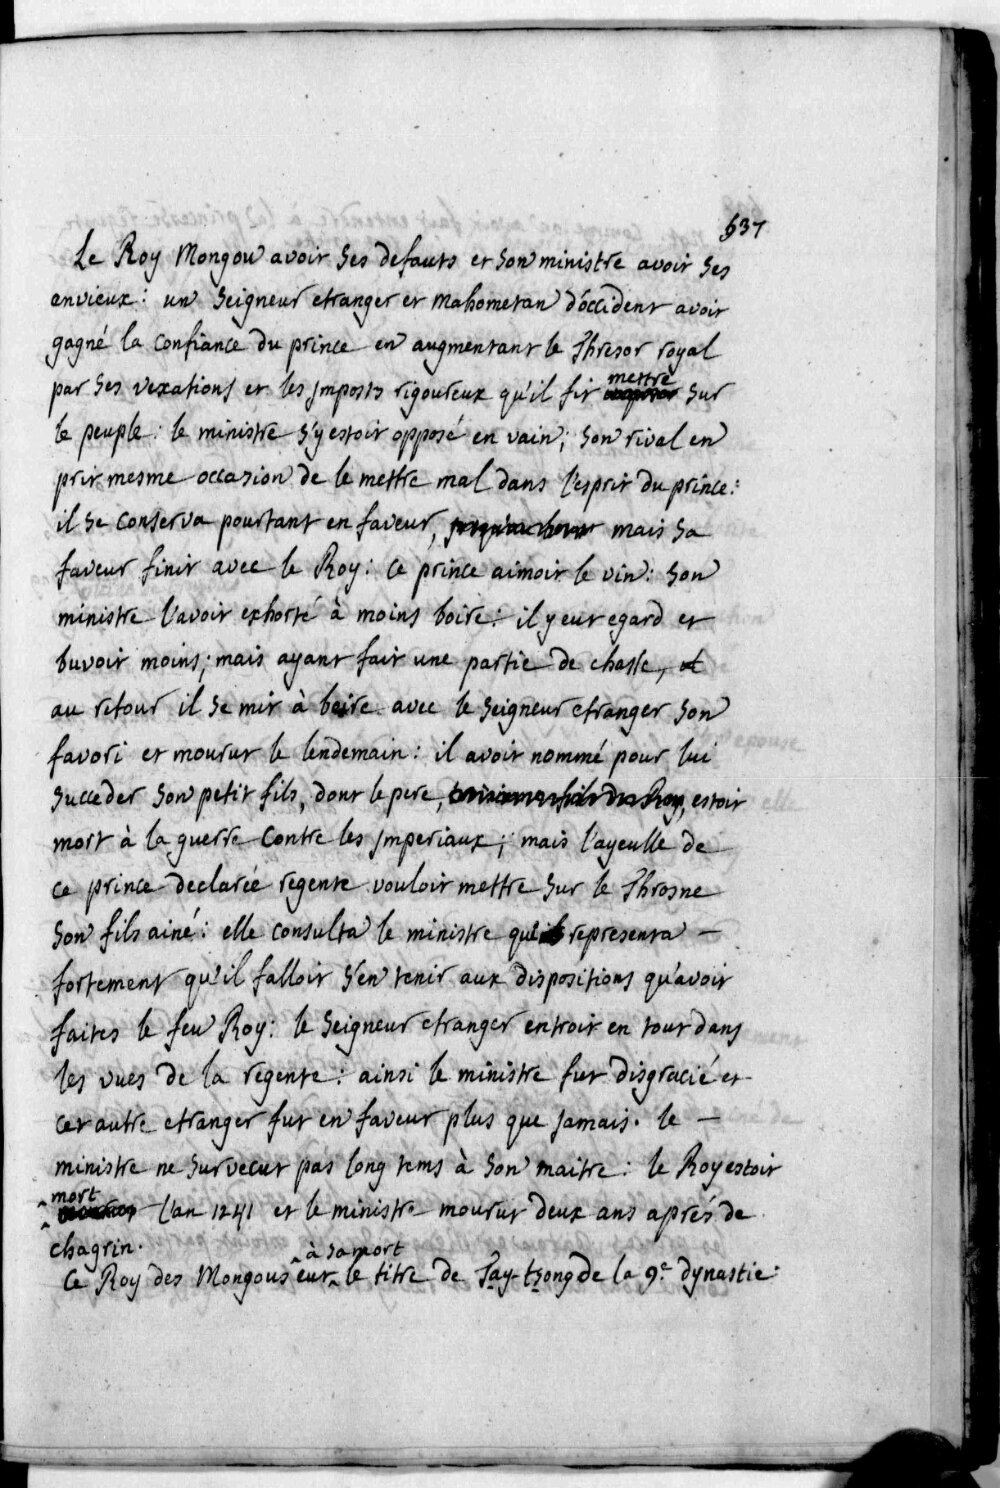 537
Le Roy Mongou avoit ses defauts et son ministre avoit ses
envieux: un seigneur etranger et mahometan d'occident avoit
gagné la confiance du prince en augmentant le Thresor royal
par ses vexations et les Jmposts rigoureux qu'il fit mettre sur
le peuple: le ministre s'y estoit opposé en vain; son rival en
prit mesme occasion de le mettre mal dans l'esprit du prince:
il se conserva pourtant en faveur, mais sa
faveur finit avec le Roy: ce prince aimoit le vin: son
ministre l'avoit exhorté à moins boire: il y eut egard et
buvoit moins; mais ayant fait une partie de chasse, et
au retour il se mit à boire avec le seigneur etranger son
favori et mourut le lendemain: il avoit nommé pour lui
succeder son petit fils, dont le pere, estoit
mort à la guerre contre les Jmperiaux; mais l'ayeulle de
ce prince declarée regente vouloit mettre sur le Throsne
son fils ainé: elle consulta le ministre qui representa —
fortement qu'il falloit s'en tenir aux dispositions qu'avoit
faites le feu Roy: le seigneur etranger entroit en tout dans
les vues de la regente: ainsi le ministre fut disgracié et
cet autre etranger fut en faveur plus que Jamais. le —
ministre ne survecut pas long tems à son maitre: le Roy estoit
mort l'an 1241 et le ministre mourut deux ans aprés de
chagrin.
Ce Roy des Mongous eut à sa mort le titre de Tay-tsong de la 9.e dynastie: